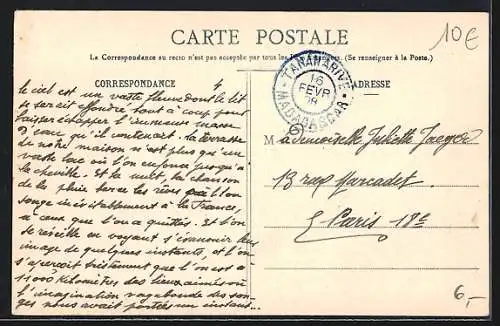 CARTE POSTALE
10€
La Correspondance au recto n'est pas acceptée par tous les (Se renseigner à la Poste.)
TANANARIVE
16
FEVR
08
MADAGASCAR
CORRESPONDANCE
ADRESSE
4
le ciel est un vaste fleuve dont le lit
se serait effondré tout à coup pour
laisser échapper l'immense masse
d'eau qu'il contenait. La terrasse
de notre maison n'est plus qu'un
vaste lac où l'on enfonce jusqu'à
la cheville. Et la nuit, la chanson
de la pluie berce les rêves et l'on
songe inévitablement à la France,
à ceux que l'on a quittés. Et l'on
se réveille en voyant s'évanouir leur
image de quelques instants, et l'on
s'aperçoit tristement que l'on est à
kilomètres des lieux aimés où
l'imagination vagabonde des son-
ges nous avait portés un instant...
Mademoiselle Juliette Jaeger
13 rue Marcadet
Paris 18e
6,-